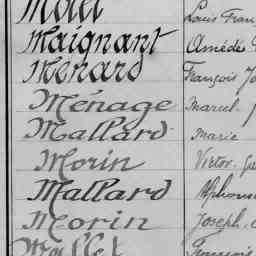 Louis Fran
Maignant Amédée
Ménard François Jo
Ménage Marcel J
Mallard Marie
Morin Victor
Mallard Alphonse
Morin Joseph
Mallet François